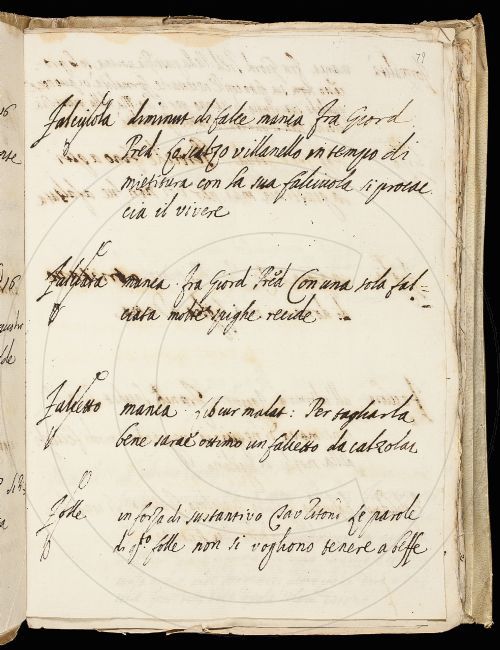 79
Falciuola diminut di falce manca Fra Giord
Pred: lo scalzo villanello in tempo di
mietitura con la sua falciuola si procac
cia il vivere
Falciata manca. fra Giord Pred Con una sola fal=
ciata molte spighe recide
Falcetto manca. libcur malat: Per tagliarla
bene sarae ottimo un falcetto da calzolai
Folle in forza di sustantivo Le parole
di qto folle non si vogliono tenere a beffe